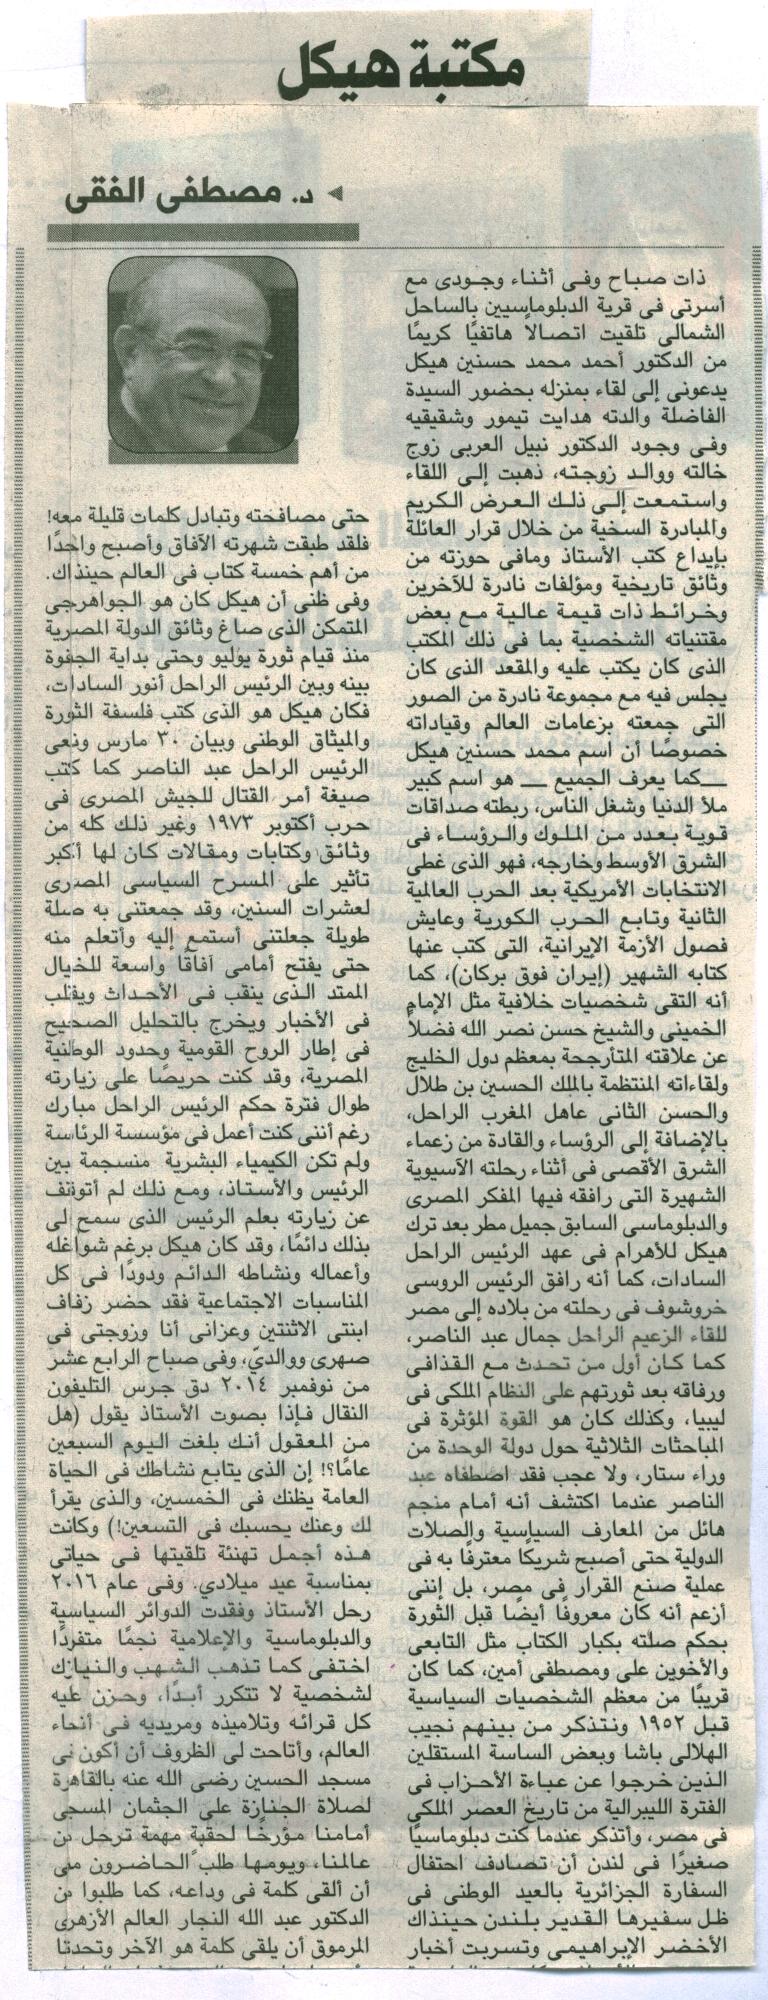 مكتبة هيكل
د. مصطفى الفقى
ذات صباح وفى أثناء وجودى مع
أسرتى فى قرية الدبلوماسيين بالساحل
الشمالى تلقيت اتصالاً هاتفيًا كريمًا
من الدكتور أحمد محمد حسنين هيكل
يدعونى إلى لقاء بمنزله بحضور السيدة
الفاضلة والدته هدايت تيمور وشقيقيه
وفى وجود الدكتور نبيل العربى زوج
خالته ووالد زوجته، ذهبت إلى اللقاء
واستمعت إلى ذلك العرض الكريم
والمبادرة السخية من خلال قرار العائلة
بإيداع كتب الأستاذ ومافى حوزته من
وثائق تاريخية ومؤلفات نادرة للآخرين
وخرائط ذات قيمة عالية مع بعض
مقتنياته الشخصية بما فى ذلك المكتب
الذى كان يكتب عليه والمقعد الذى كان
يجلس فيه مع مجموعة نادرة من الصور
التى جمعته بزعامات العالم وقياداته
خصوصًا أن اسم محمد حسنين هيكل
ــ كما يعرف الجميع ــ هو اسم كبير
ملأ الدنيا وشغل الناس، ربطته صداقات
قوية بعدد من الملوك والرؤساء فى
الشرق الأوسط وخارجه، فهو الذى غطى
الانتخابات الأمريكية بعد الحرب العالمية
الثانية وتابع الحرب الكورية وعايش
فصول الأزمة الإيرانية، التى كتب عنها
كتابه الشهير (إيران فوق بركان)، كما
أنه التقى شخصيات خلافية مثل الإمام
الخمينى والشيخ حسن نصر الله فضلاً
عن علاقته المتأرجحة بمعظم دول الخليج
ولقاءاته المنتظمة بالملك الحسين بن طلال
والحسن الثانى عاهل المغرب الراحل،
بالإضافة إلى الرؤساء والقادة من زعماء
الشرق الأقصى فى أثناء رحلته الآسيوية
الشهيرة التى رافقه فيها المفكر المصرى
والدبلوماسى السابق جميل مطر بعد ترك
هيكل للأهرام فى عهد الرئيس الراحل
السادات، كما أنه رافق الرئيس الروسى
خروشوف فى رحلته من بلاده إلى مصر
للقاء الزعيم الراحل جمال عبد الناصر،
كما كان أول من تحدث مع القذافى
ورفاقه بعد ثورتهم على النظام الملكى فى
ليبيا، وكذلك كان هو القوة المؤثرة فى
المباحثات الثلاثية حول دولة الوحدة من
وراء ستار، ولا عجب فقد اصطفاه عبد
الناصر عندما اكتشف أنه أمام منجم
هائل من المعارف السياسية والصلات
الدولية حتى أصبح شريكًا معترفًا به فى
عملية صنع القرار فى مصر، بل إننى
أزعم أنه كان معروفًا أيضًا قبل الثورة
بحكم صلته بكبار الكتاب مثل التابعى
والأخوين على ومصطفى أمين، كما كان
قريبًا من معظم الشخصيات السياسية
قبل ١٩٥٢ ونتذكر من بينهم نجيب
الهلالى باشا وبعض الساسة المستقلين
الذين خرجوا عن عباءة الأحزاب فى
الفترة الليبرالية من تاريخ العصر الملكى
فى مصر، وأتذكر عندما كنت دبلوماسيًا
صغيرًا فى لندن أن تصادف احتفال
السفارة الجزائرية بالعيد الوطنى فى
ظل سفيرها القدير بلندن حينذاك
الأخضر الإبراهيمى وتسربت أخبار
حتى مصافحته وتبادل كلمات قليلة معه!
فلقد طبقت شهرته الآفاق وأصبح واحدًا
من أهم خمسة كتاب فى العالم حينذاك.
وفى ظنى أن هيكل كان هو الجواهرجى
المتمكن الذى صاغ وثائق الدولة المصرية
منذ قيام ثورة يوليو وحتى بداية الجفوة
بينه وبين الرئيس الراحل أنور السادات،
فكان هيكل هو الذى كتب فلسفة الثورة
والميثاق الوطنى وبيان ٣٠ مارس ونعى
الرئيس الراحل عبد الناصر كما كتب
صيغة أمر القتال للجيش المصرى فى
حرب أكتوبر ١٩٧٣ وغير ذلك كله من
وثائق وكتابات ومقالات كان لها أكبر
تأثير على المسرح السياسى المصرى
لعشرات السنين، وقد جمعتنى به صلة
طويلة جعلتنى أستمع إليه وأتعلم منه
حتى يفتح أمامى آفاقًا واسعة للخيال
الممتد الذى ينقب فى الأحداث ويقلب
فى الأخبار ويخرج بالتحليل الصحيح
فى إطار الروح القومية وحدود الوطنية
المصرية، وقد كنت حريصًا على زيارته
طوال فترة حكم الرئيس الراحل مبارك
رغم أننى كنت أعمل فى مؤسسة الرئاسة
ولم تكن الكيمياء البشرية منسجمة بين
الرئيس والأستاذ، ومع ذلك لم أتوقف
عن زيارته بعلم الرئيس الذى سمح لى
بذلك دائمًا، وقد كان هيكل برغم شواغله
وأعماله ونشاطه الدائم ودودًا فى كل
المناسبات الاجتماعية فقد حضر زفاف
ابنتى الاثنتين وعزانى أنا وزوجتى فى
صهرى ووالدىّ، وفى صباح الرابع عشر
من نوفمبر ٢٠١٤ دق جرس التليفون
النقال فإذا بصوت الأستاذ يقول (هل
من المعقول أنك بلغت اليوم السبعين
عامًا؟! إن الذى يتابع نشاطك فى الحياة
العامة يظنك فى الخمسين، والذى يقرأ
لك وعنك يحسبك فى التسعين!) وكانت
هذه أجمل تهنئة تلقيتها فى حياتى
بمناسبة عيد ميلادي. وفى عام ٢٠١٦
رحل الأستاذ وفقدت الدوائر السياسية
والدبلوماسية والإعلامية نجمًا متفردًا
اختفى كما تذهب الشهب والنيازك
لشخصية لا تتكرر أبدًا، وحزن عليه
كل قرائه وتلاميذه ومريديه فى أنحاء
العالم، وأتاحت لى الظروف أن أكون فى
مسجد الحسين رضى الله عنه بالقاهرة
لصلاة الجنازة على الجثمان المسجى
أمامنا مؤرخًا لحقبة مهمة ترحل من
عالمنا، ويومها طلب الحاضرون منى
أن ألقى كلمة فى وداعه، كما طلبوا من
الدكتور عبد الله النجار العالم الأزهرى
المرموق أن يلقى كلمة هو الآخر وتحدثنا